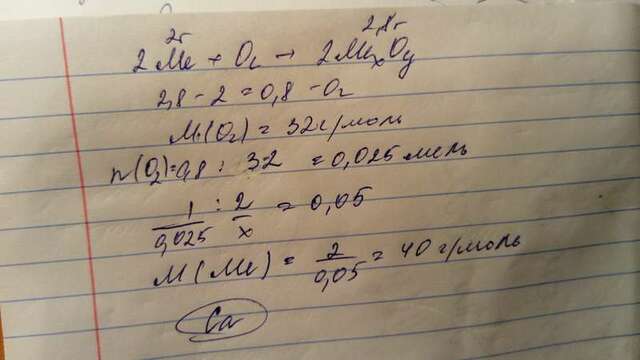 2г 2,8г
2Me + O₂ → 2MexOy
2,8 - 2 = 0,8 - O₂
M(O₂) = 32 г/моль
n(O₂) = 0,8 : 32 = 0,025 моль
1/0,025 : 2/x = 0,05
M(Me) = 2/0,05 = 40 г/моль
Ca